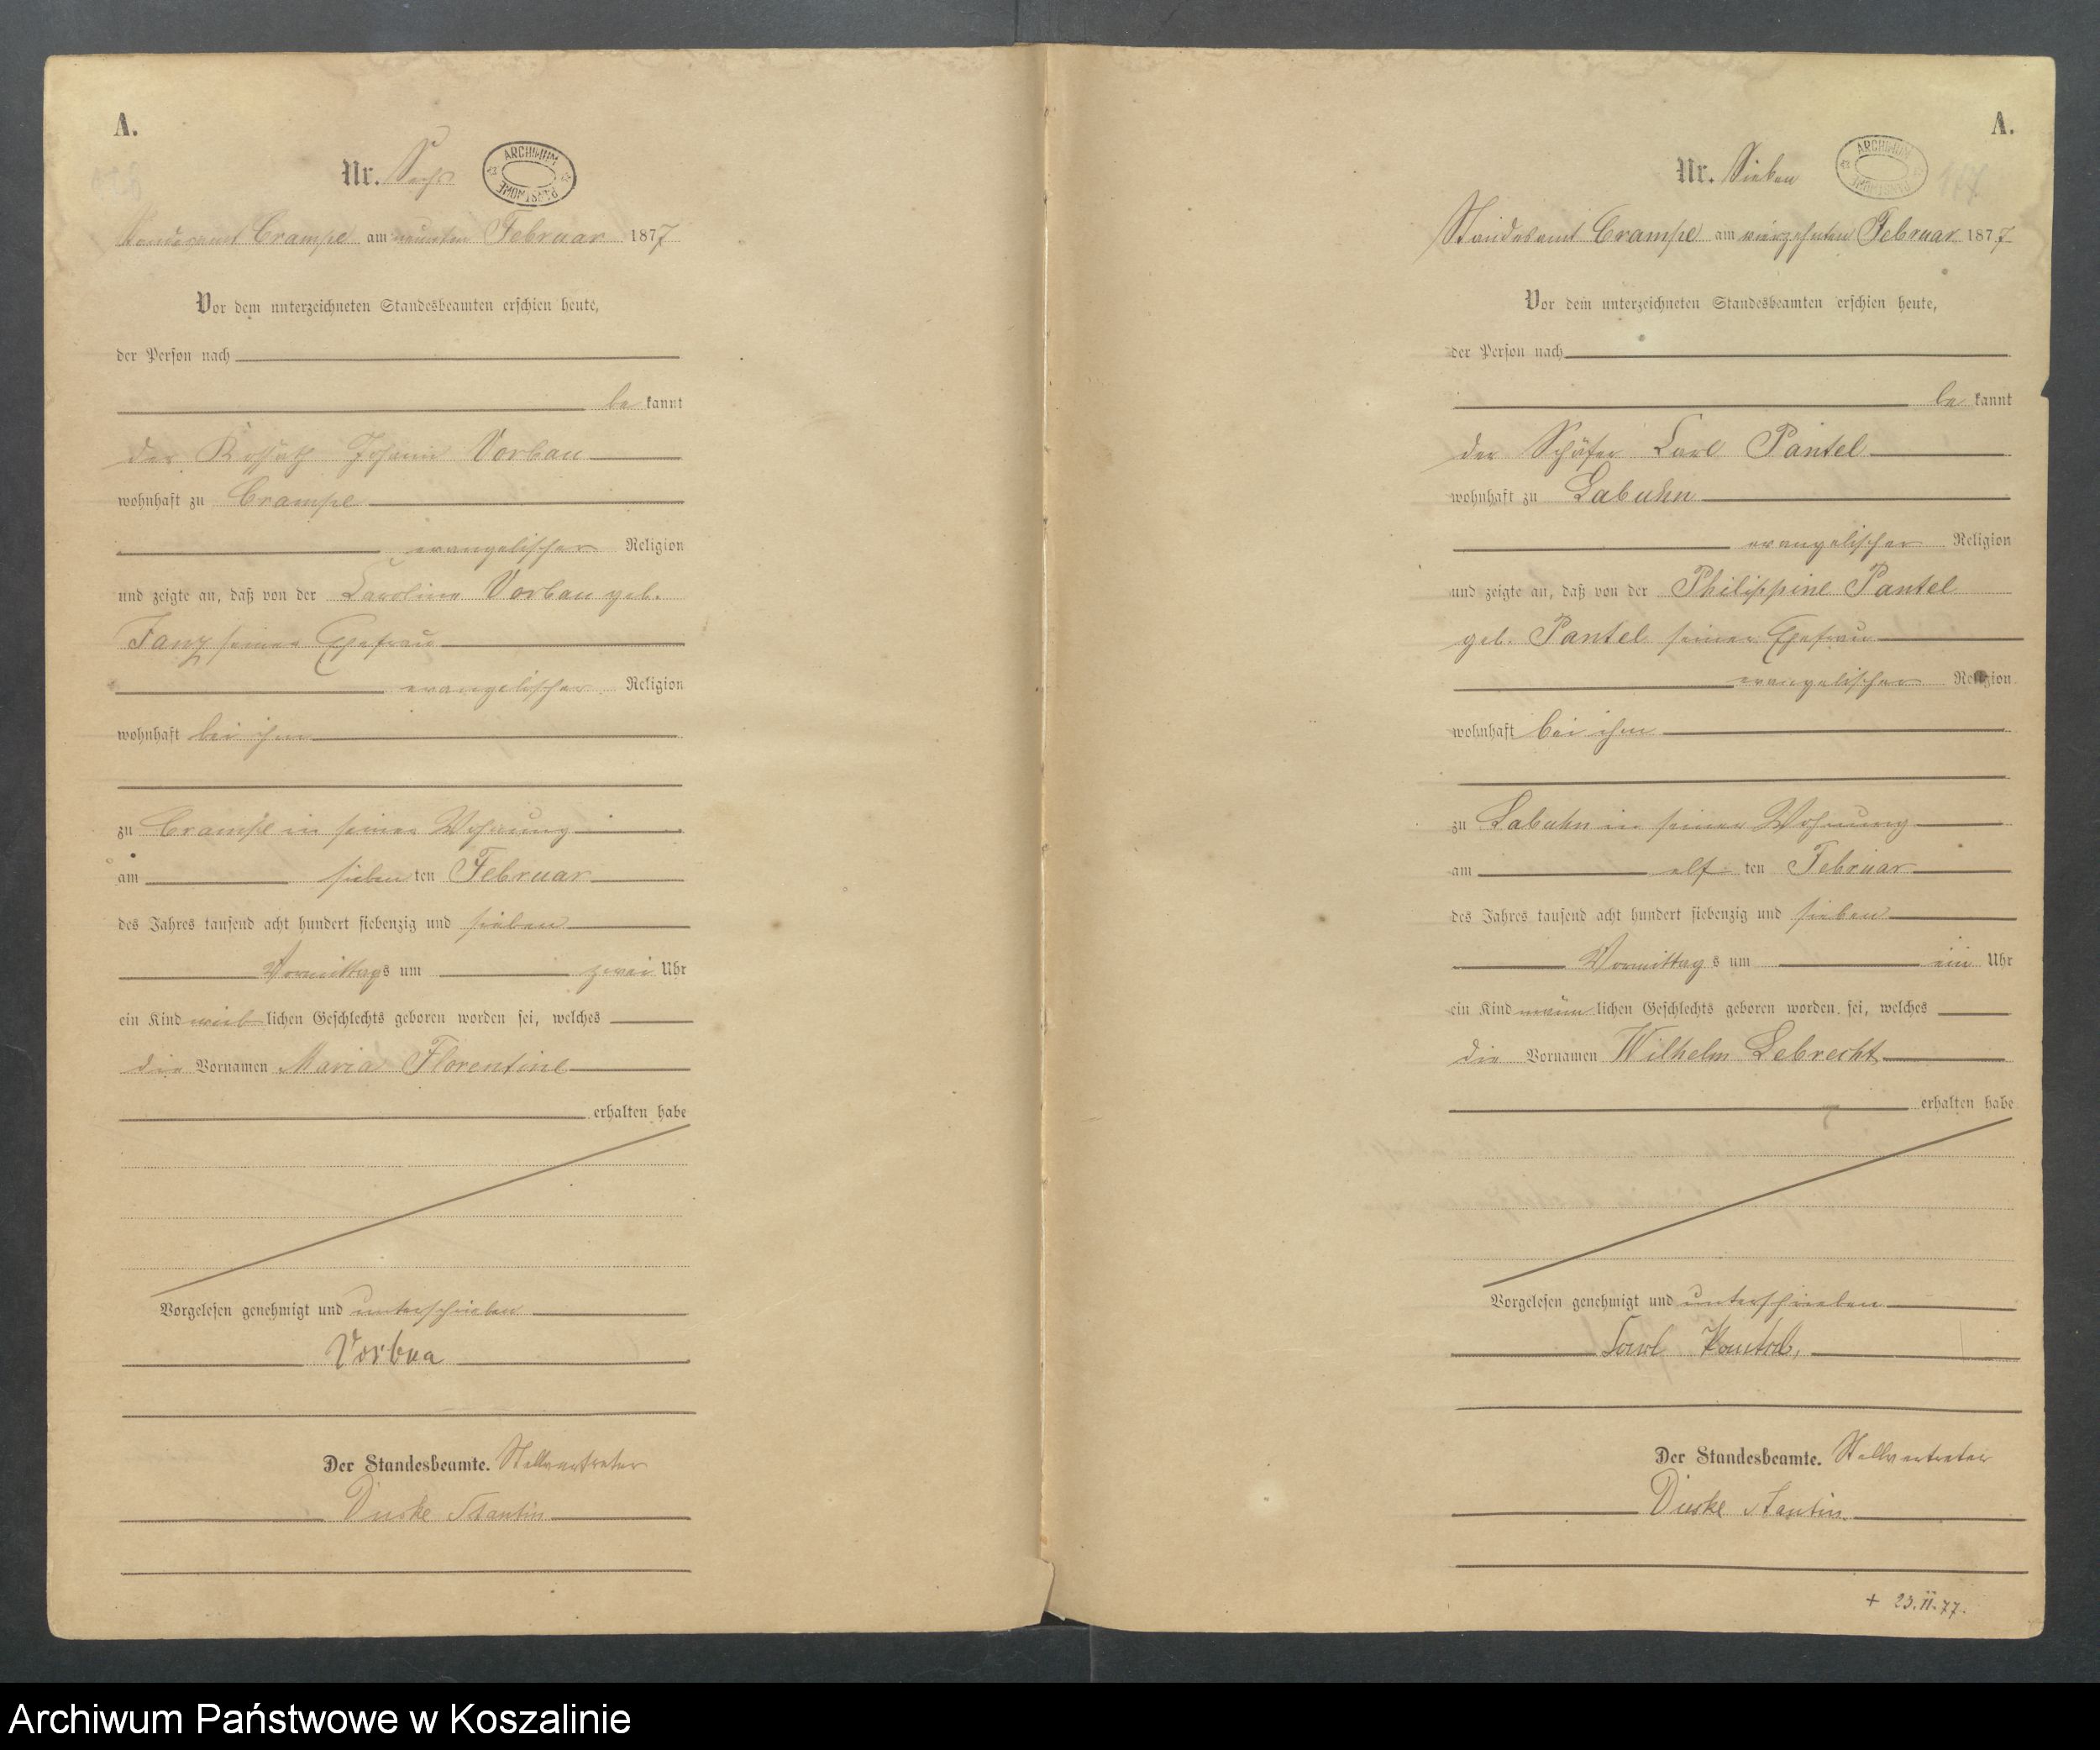 A.
Nr. Sechs
ARCHIWUM PAŃSTWOWE
Standesamt Crampe am neunten Februar 1877
Vor dem unterzeichneten Standesbeamten erschien heute,
der Person nach
be kannt
der Kossäth Johann Vorbau
wohnhaft zu Crampe
evangelischer Religion
und zeigte an, daß von der Caroline Vorbau geb.
Janz seiner Ehefrau
evangelischer Religion
wohnhaft bei ihm
zu Crampe in seiner Wohnung
am sieben ten Februar
des Jahres tausend acht hundert siebenzig und sieben
Vormittags um zwei Uhr
ein Kind weib lichen Geschlechts geboren worden sei, welches
die Vornamen Maria Florentine
erhalten habe
Vorgelesen genehmigt und unterschrieben
Vorbua
Der Standesbeamte. Stellvertreter
Duske Stantin
A.
Nr. Sieben
ARCHIWUM PAŃSTWOWE
177
Standesamt Crampe am vierzehnten Februar 1877
Vor dem unterzeichneten Standesbeamten erschien heute,
der Person nach
be kannt
der Schäfer Carl Pantel
wohnhaft zu Labuhn
evangelischer Religion
und zeigte an, daß von der Philippine Pantel
geb. Pantel seiner Ehefrau
evangelischer Religion
wohnhaft bei ihm
zu Labuhn in seiner Wohnung
am elf ten Februar
des Jahres tausend acht hundert siebenzig und sieben
Vormittag s um ein Uhr
ein Kind männ lichen Geschlechts geboren worden sei, welches
die Vornamen Wilhelm Lebrecht
erhalten habe
Vorgelesen genehmigt und unterschrieben
Carl Pantel,
Der Standesbeamte. Stellvertreter
Duske Stantin.
+ 23.II.77.
Archiwum Państwowe w Koszalinie